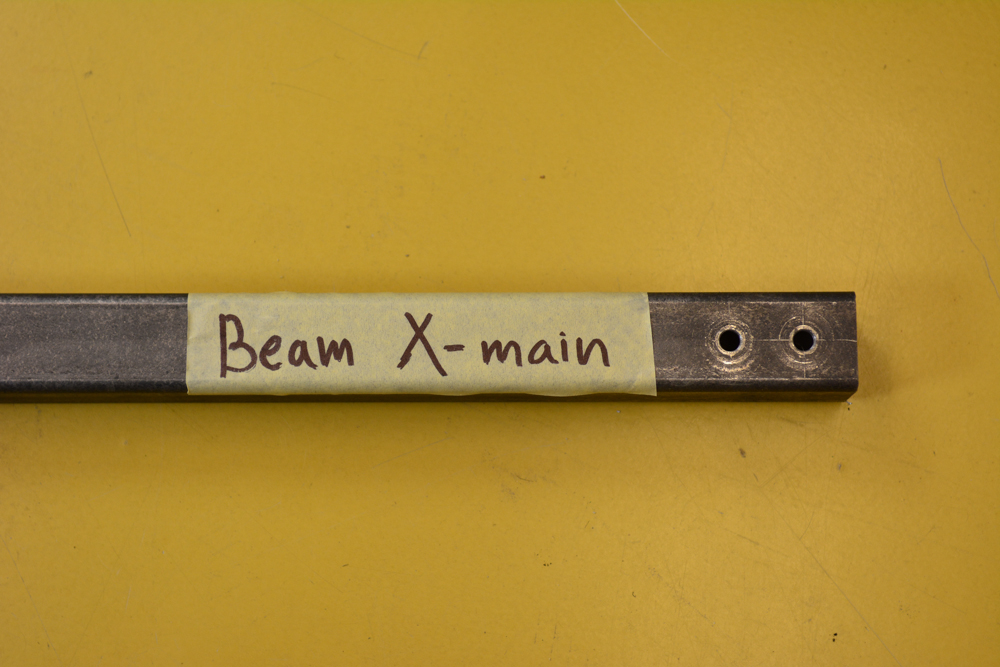 Beam X-main